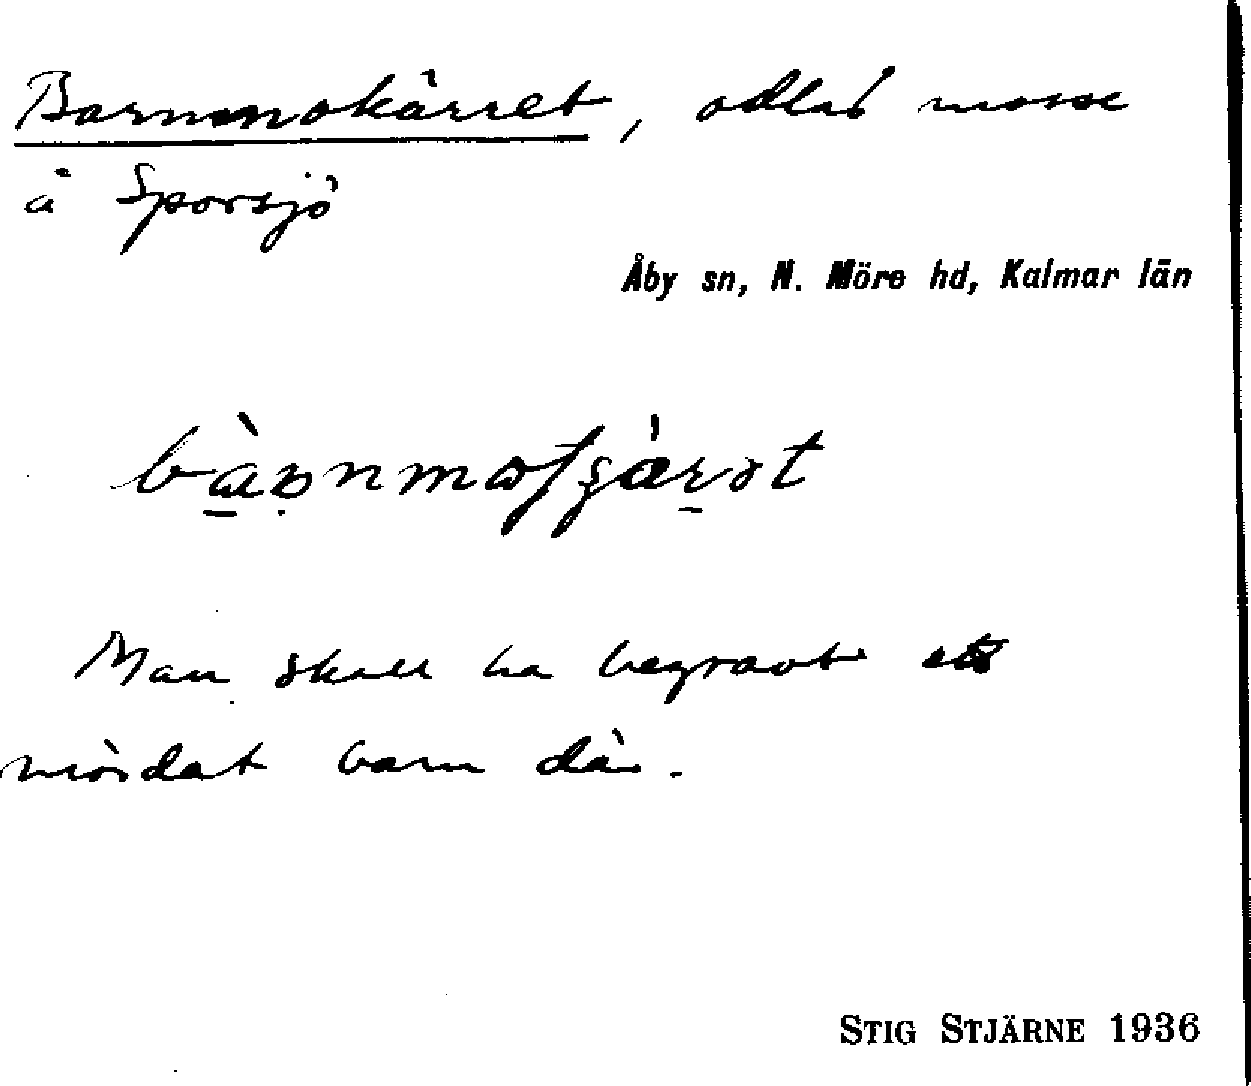 Barnmokärret, odlad mosse
å Sporsjö
Åby sn, N. Möre hd, Kalmar län
Man skall ha begravt ett
mördat barn där.
STIG STJÄRNE 1936